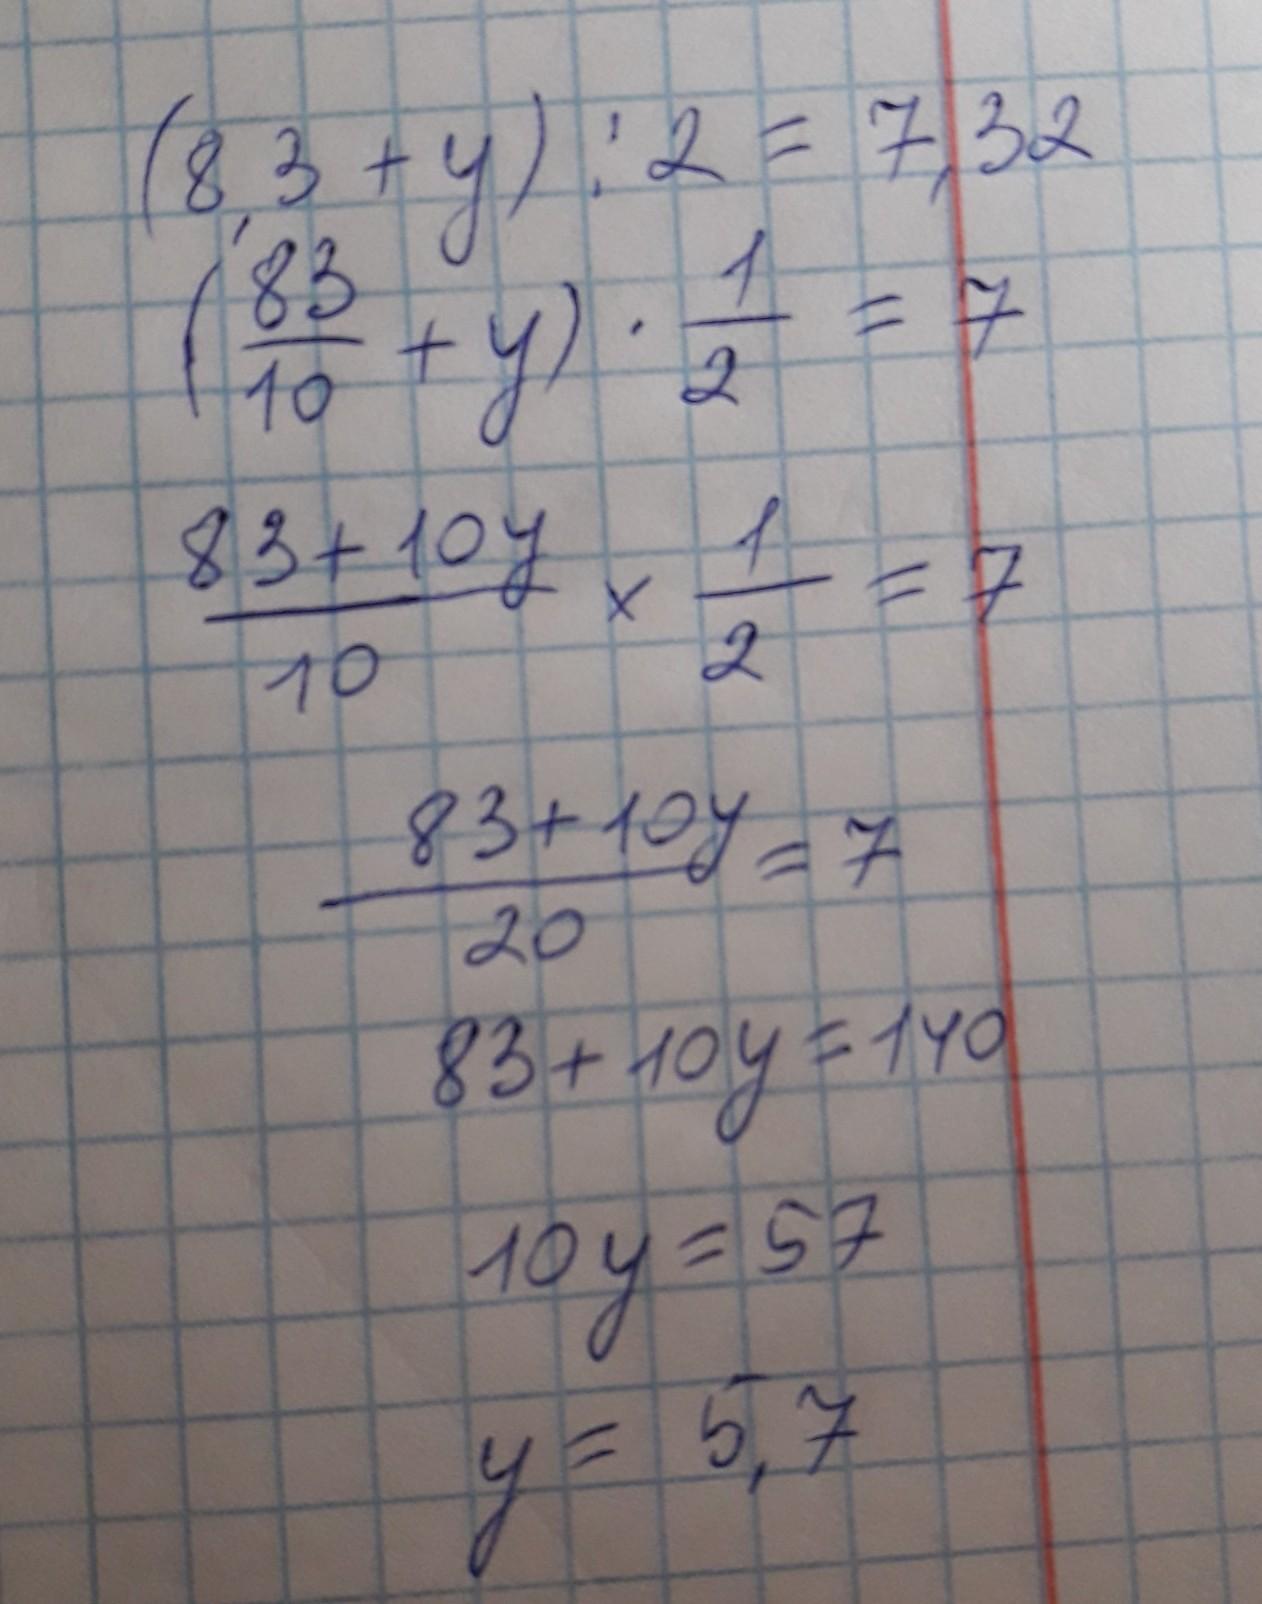 (8,3 + y) : 2 = 7,32
(83/10 + y) · 1/2 = 7
83+10y/10 × 1/2 = 7
83+10y/20 = 7
83 + 10y = 140
10y = 57
y = 5,7